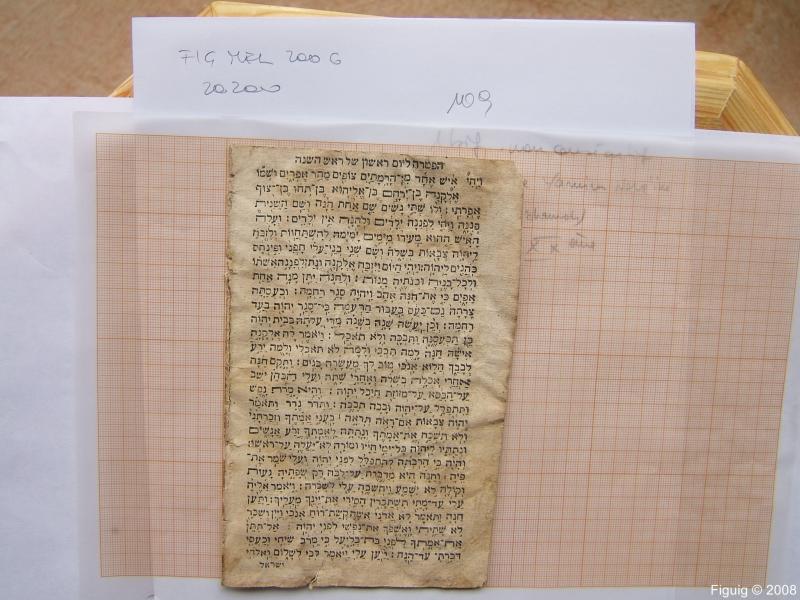 FIG MEL 200 G
202000
109
הפטרה ליום ראשון של ראש השנה
ויהי איש אחד מן־הרמתים צופים מהר אפרים ושמו
אלקנה בן־ירחם בן־אליהוא בן־תחו בן־צוף
אפרתי: ולו שתי נשים שם אחת חנה ושם השנית
פננה ויהי לפננה ילדים ולחנה אין ילדים: ועלה
האיש ההוא מעירו מימים ימימה להשתחות ולזבח
ליהוה צבאות בשלה ושם שני בני־עלי חפני ופינחס
כהנים ליהוה: ויהי היום ויזבח אלקנה ונתן לפננה אשתו
ולכל־בניה ובנתיה מנות: ולחנה יתן מנה אחת
אפים כי את־חנה אהב ויהוה סגר רחמה: וכעסתה
צרתה גם־כעס בעבור הרעמה כי־סגר יהוה בעד
רחמה: וכן יעשה שנה בשנה מדי עלתה בבית יהוה
כן תכעסנה ותבכה ולא תאכל: ויאמר לה אלקנה
אישה חנה למה תבכי ולמה לא תאכלי ולמה ירע
לבבך הלוא אנכי טוב לך מעשרה בנים: ותקם חנה
אחרי אכלה בשלה ואחרי שתה ועלי הכהן ישב
על־הכסא על־מזוזת היכל יהוה: והיא מרת נפש
ותתפלל על־יהוה ובכה תבכה: ותדר נדר ותאמר
יהוה צבאות אם־ראה תראה בעני אמתך וזכרתני
ולא תשכח את־אמתך ונתתה לאמתך זרע אנשים
ונתתיו ליהוה כל־ימי חייו ומורה לא־יעלה על־ראשו:
והיה כי הרבתה להתפלל לפני יהוה ועלי שמר את־
פיה: וחנה היא מדברת על־לבה רק שפתיה נעות
וקולה לא ישמע ויחשבה עלי לשכרה: ויאמר אליה
עלי עד־מתי תשתכרין הסירי את־יינך מעליך: ותען
חנה ותאמר לא אדני אשה קשת־רוח אנכי ויין ושכר
לא שתיתי ואשפך את־נפשי לפני יהוה: אל־תתן
את־אמתך לפני בת־בליעל כי מרב שיחי וכעסי
דברתי עד־הנה: ויען עלי ויאמר לכי לשלום ואלהי
ישראל
Figuig © 2008